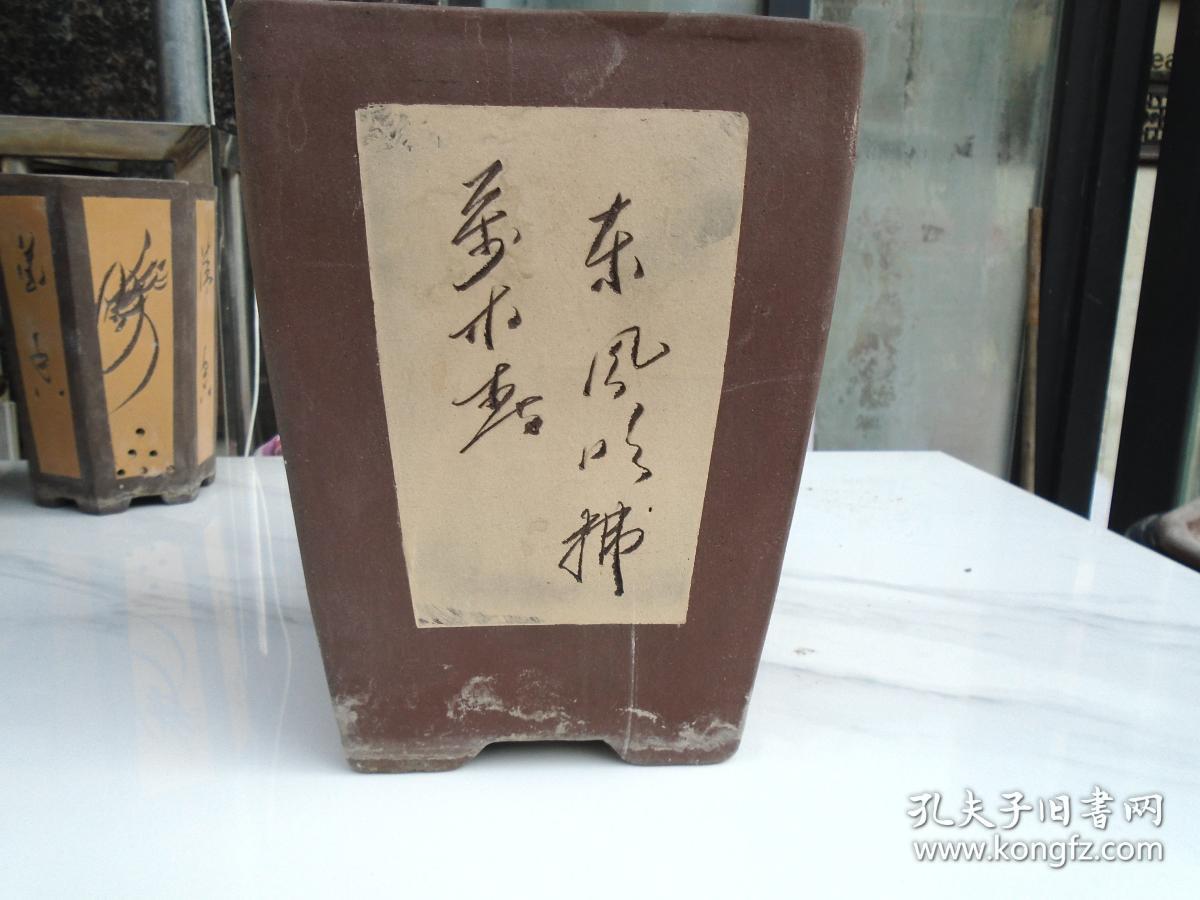 东风吹拂
万木春
孔夫子旧书网
www.kongfz.com